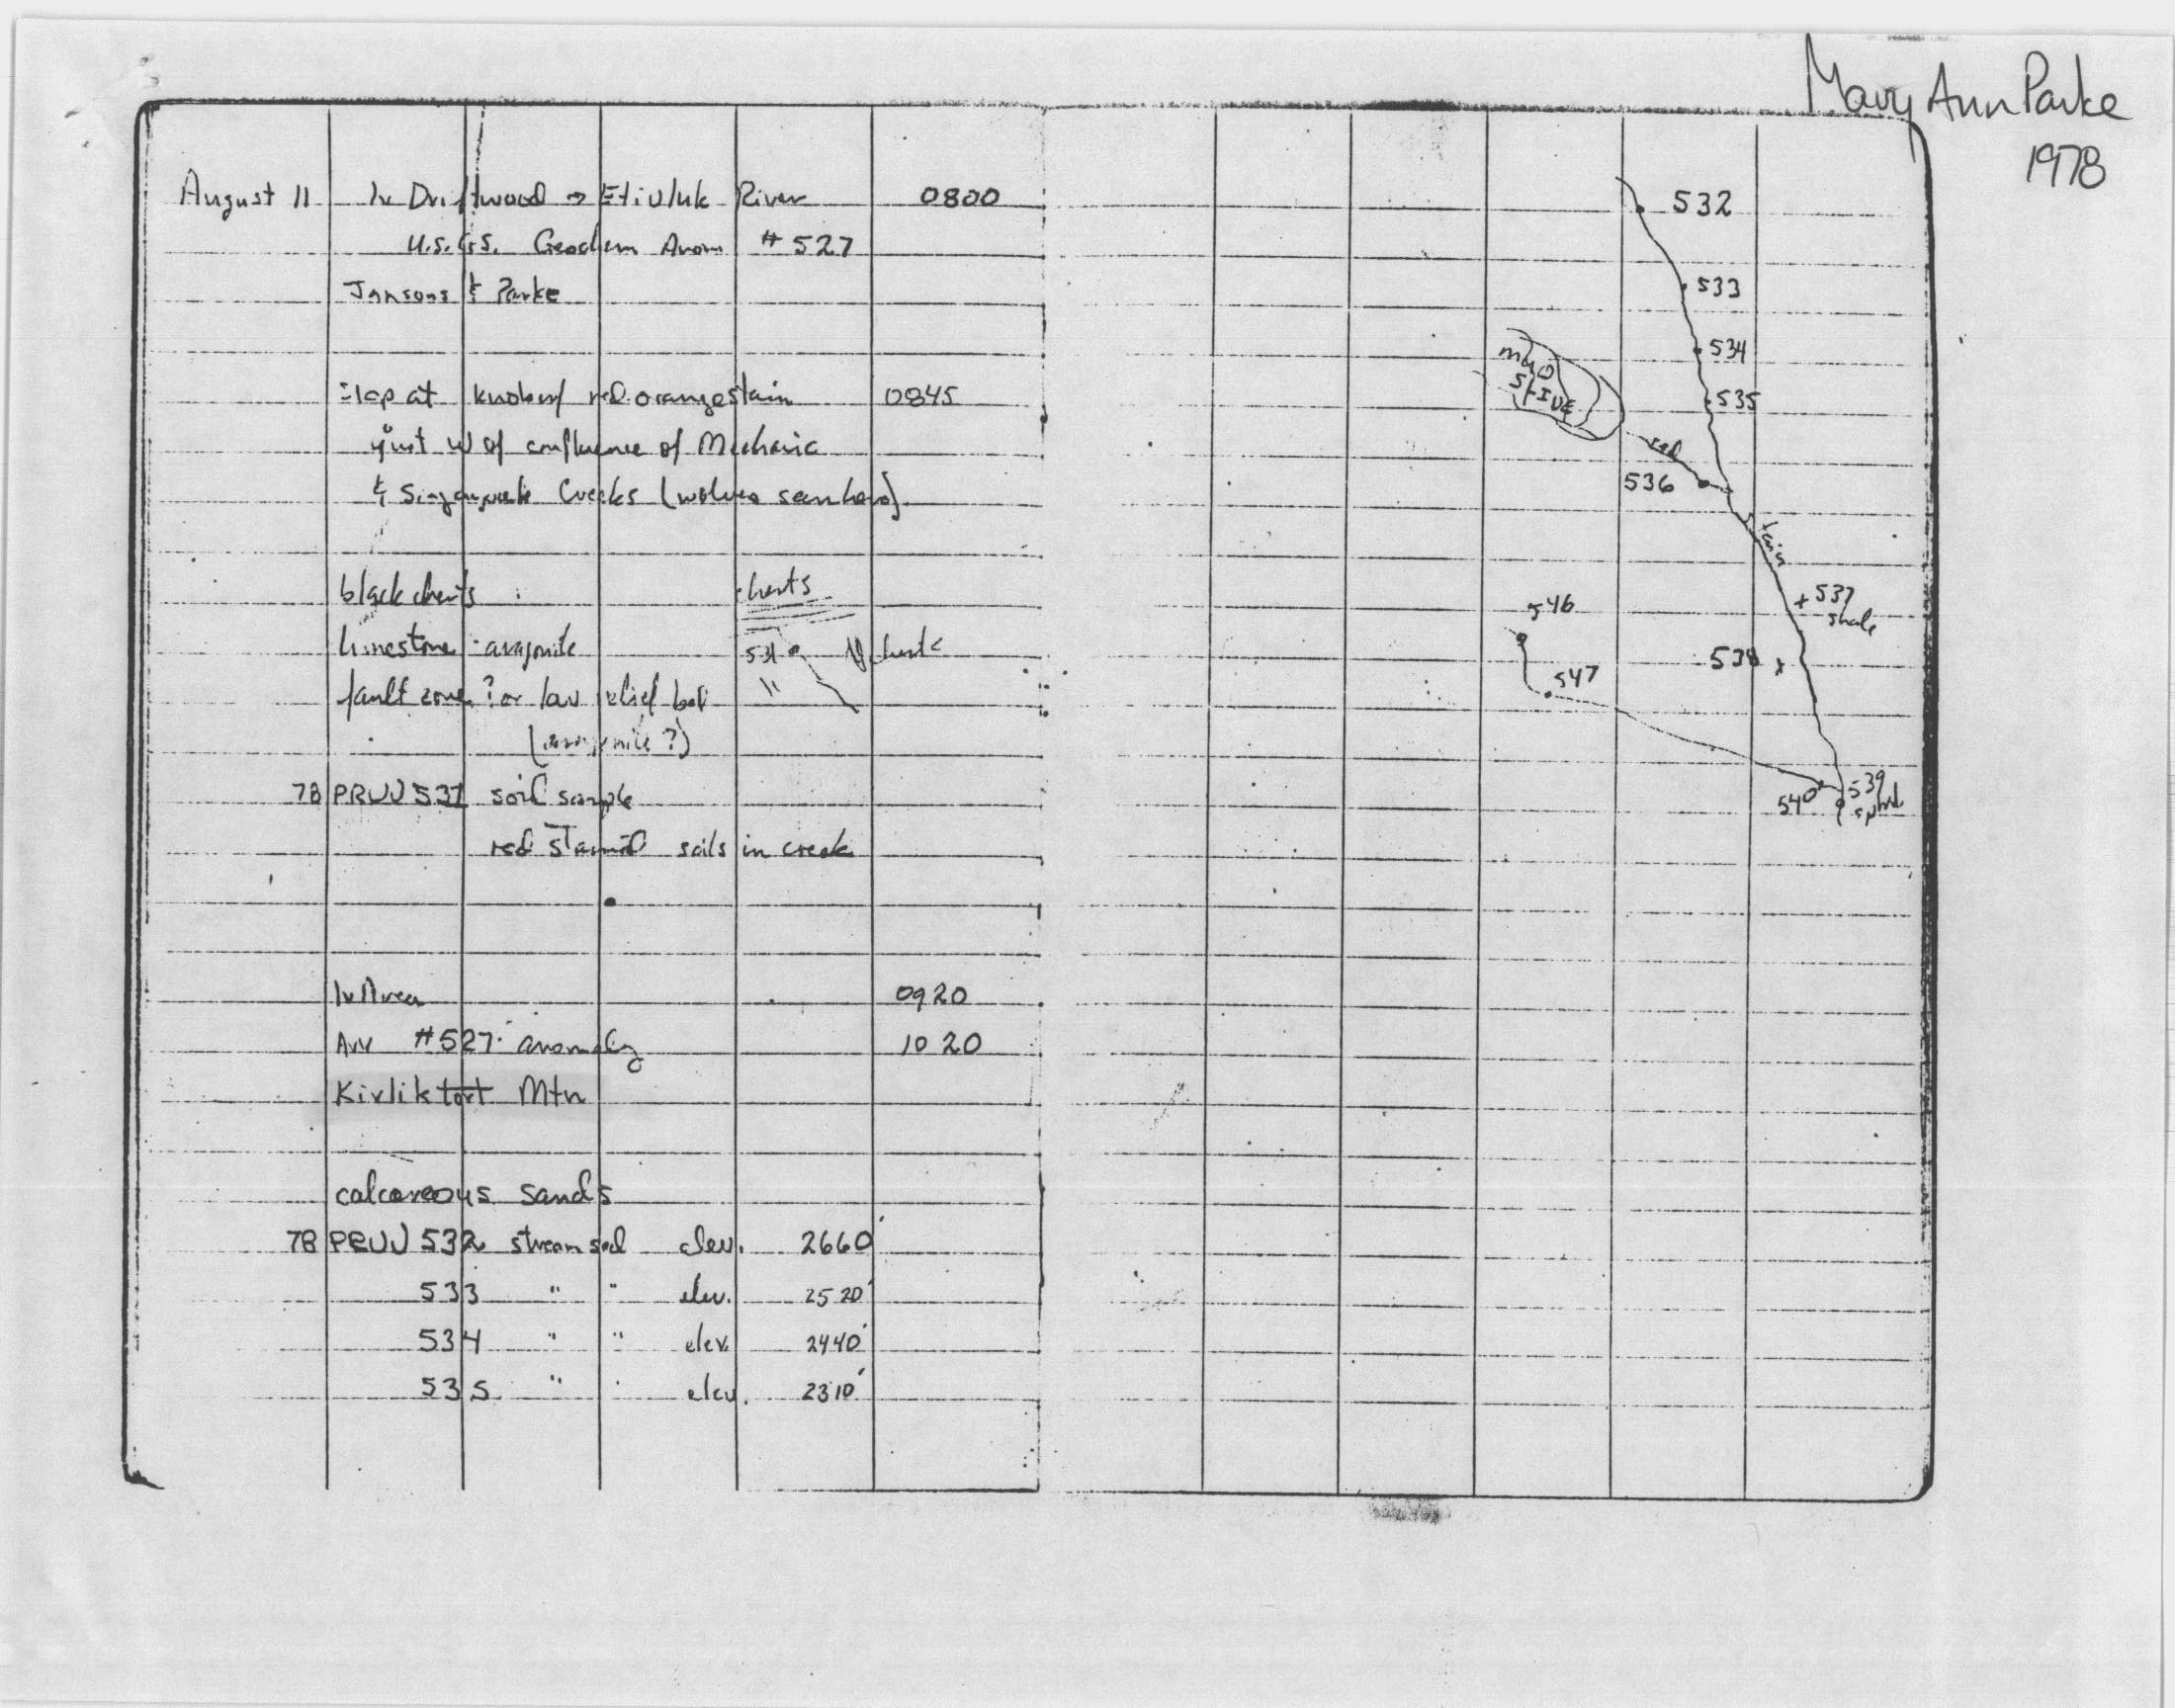 Mary Ann Parke
1978
August 11 lv Driftwood → Etivluk River 0800
U.S.G.S. Geochem Anom #527
Jansons & Parke
stop at knob w/ red orange stain 0845
just W of confluence of Mechanic
& Creeks (wolves seen here)
black cherts
limestone - aragonite
fault zone? or low relief bet
(aragonite?)
cherts
531
cherts
78 PRUJ 531 soil sample
red stained soils in creek
lv Area 0920
Arr #527 anomaly 1020
Kivliktort Mtn
calcareous sands
78 PRUJ 532 stream sed elev. 2660'
533 " " elev. 2520'
534 " " elev. 2440'
535 " " elev. 2310'
532
533
534
535
red
536
537
shale
546
538
547
539
540
sphal